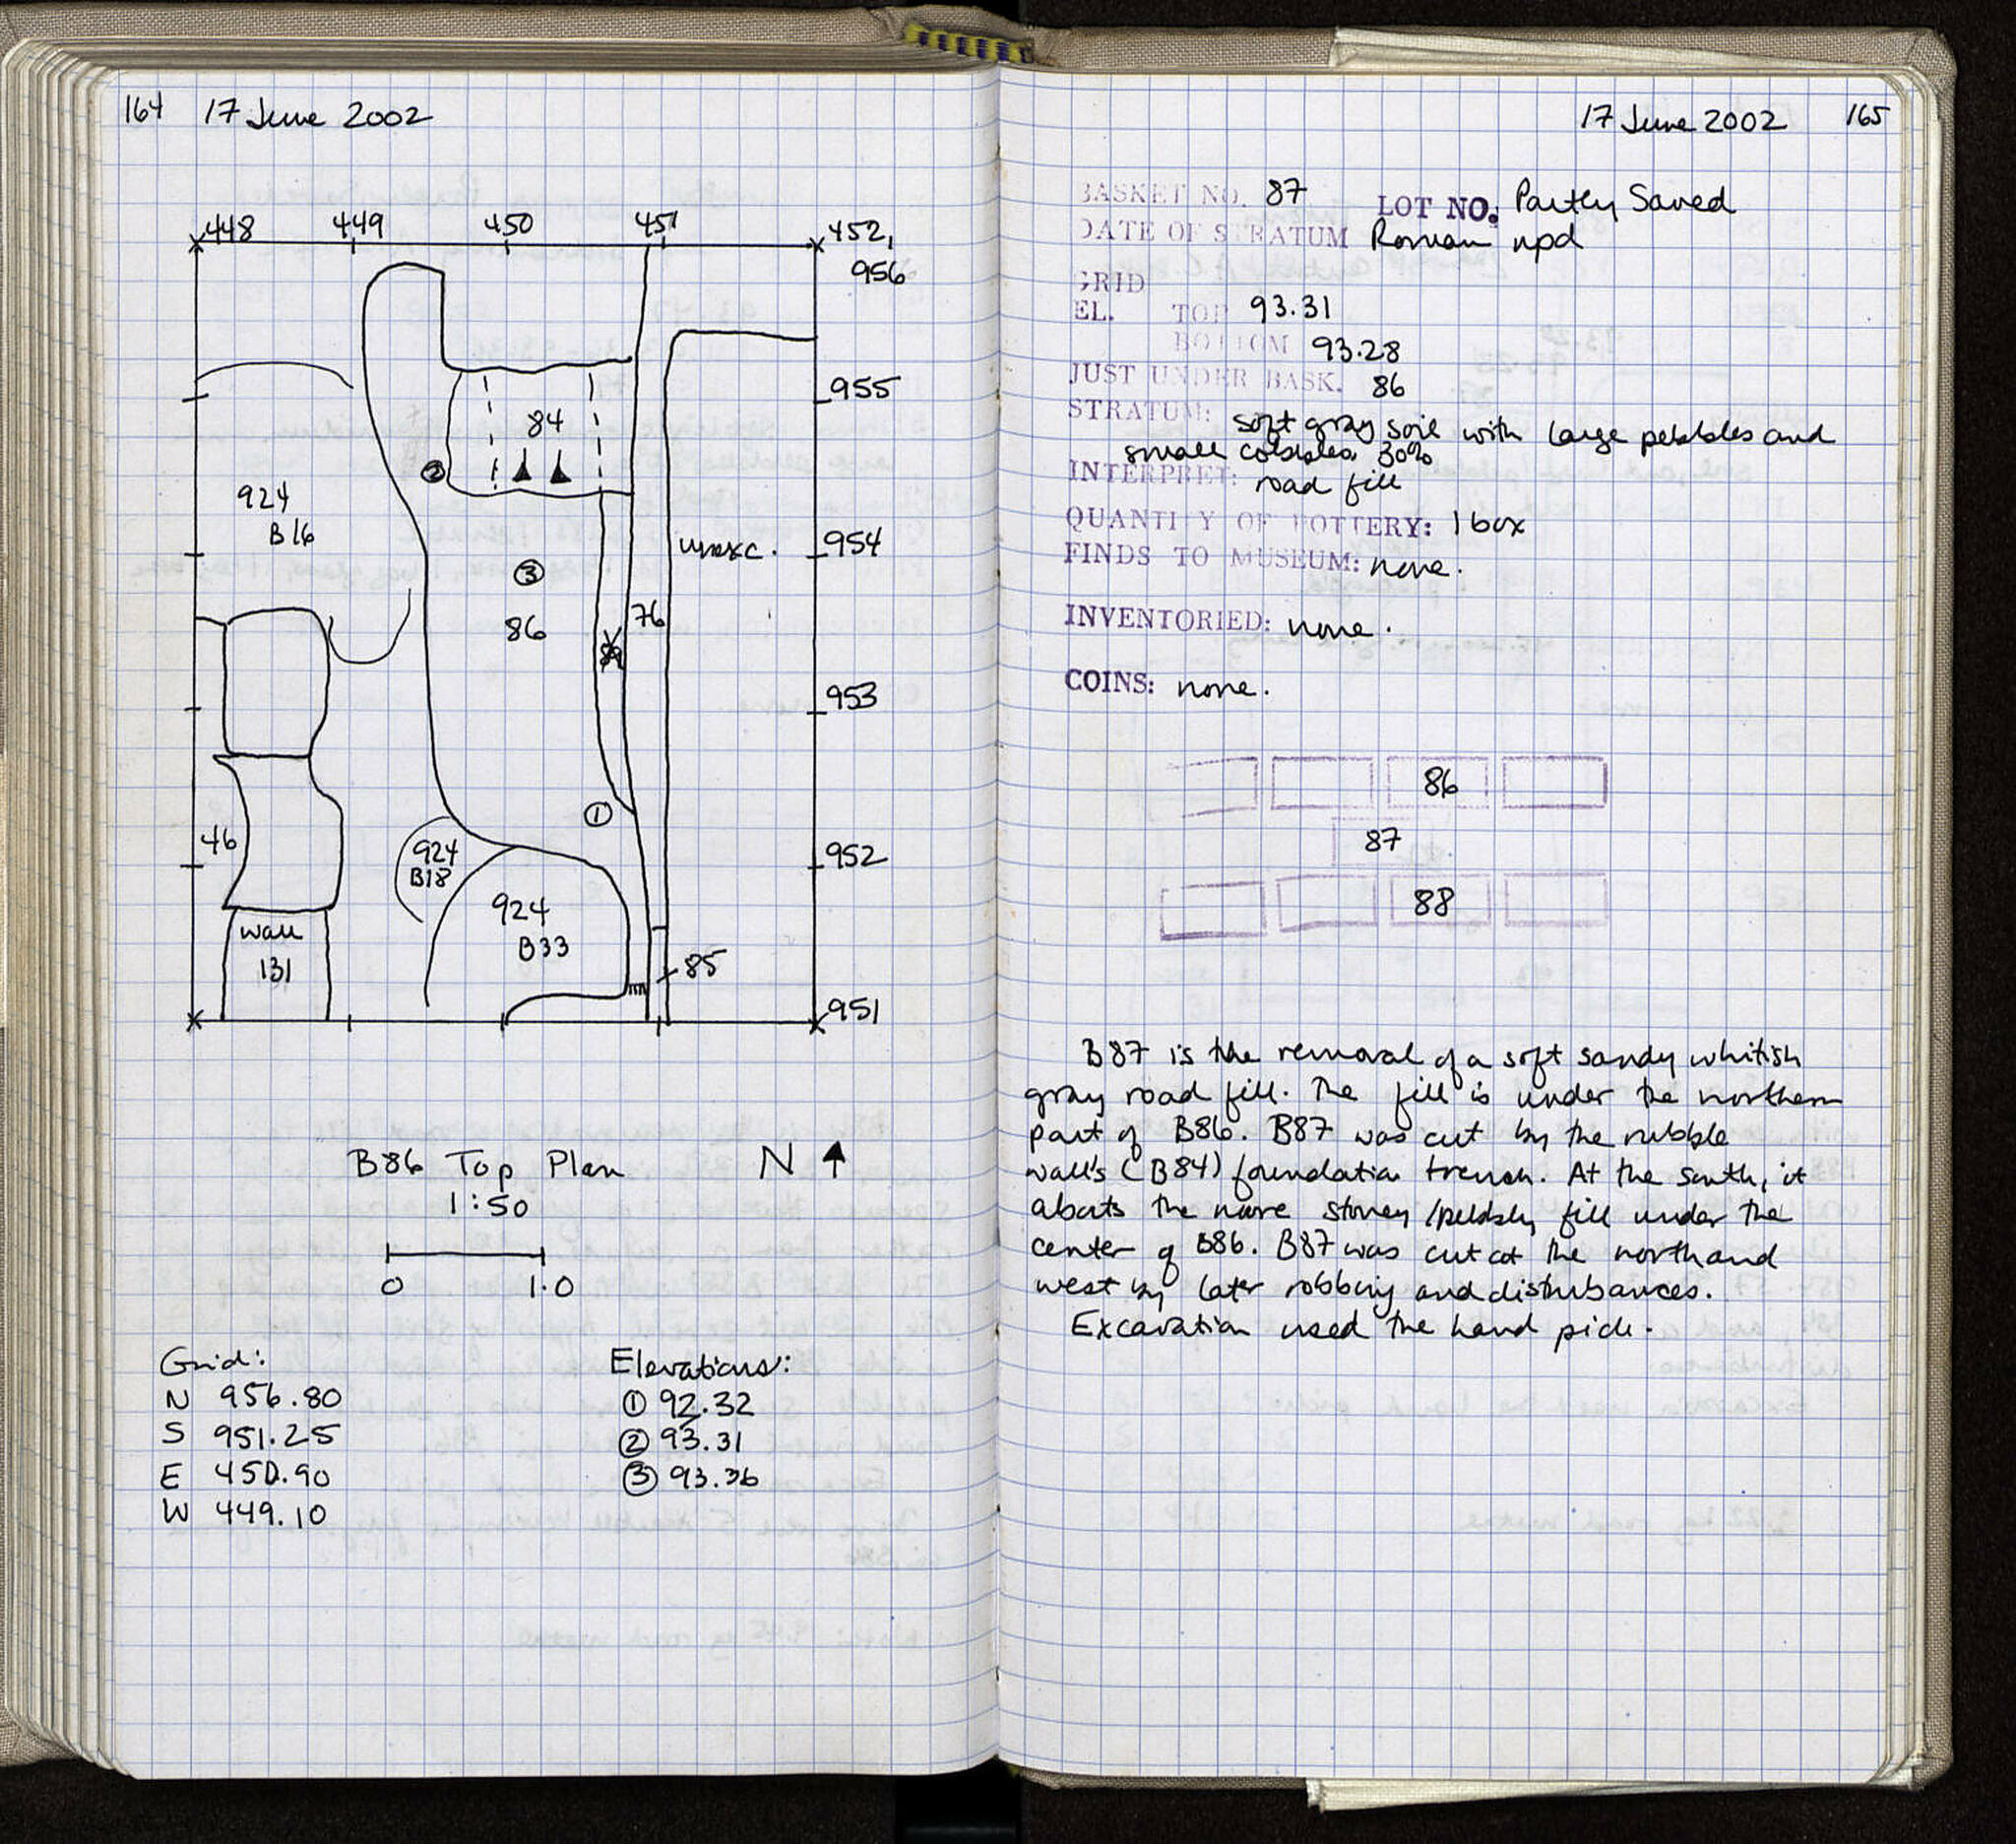 164 17 June 2002
448 449 450 451 452,
956
955
84
②
924
B16
unexc.
954
③
86
76
953
①
46
924
B18
952
924
B33
wall
131
85
951
B86 Top Plan N
1:50
0 1.0
Grid:
N 956.80
S 951.25
E 450.90
W 449.10
Elevations:
① 92.32
② 93.31
③ 93.36
17 June 2002 165
BASKET NO. 87 LOT NO. Partly Saved
DATE OF STRATUM Roman npd
GRID
EL. TOP 93.31
BOTTOM 93.28
JUST UNDER BASK. 86
STRATUM: soft gray soil with large pebbles and
small cobbles 30%
INTERPRET: road fill
QUANTITY OF POTTERY: 1 box
FINDS TO MUSEUM: none.
INVENTORIED: none.
COINS: none.
86
87
88
B87 is the removal of a soft sandy whitish
gray road fill. The fill is under the northern
part of B86. B87 was cut by the rubble
wall's (B84) foundation trench. At the south, it
abuts the more stoney/pebbly fill under the
center of B86. B87 was cut at the north and
west by later robbing and disturbances.
Excavation used the hand pick.